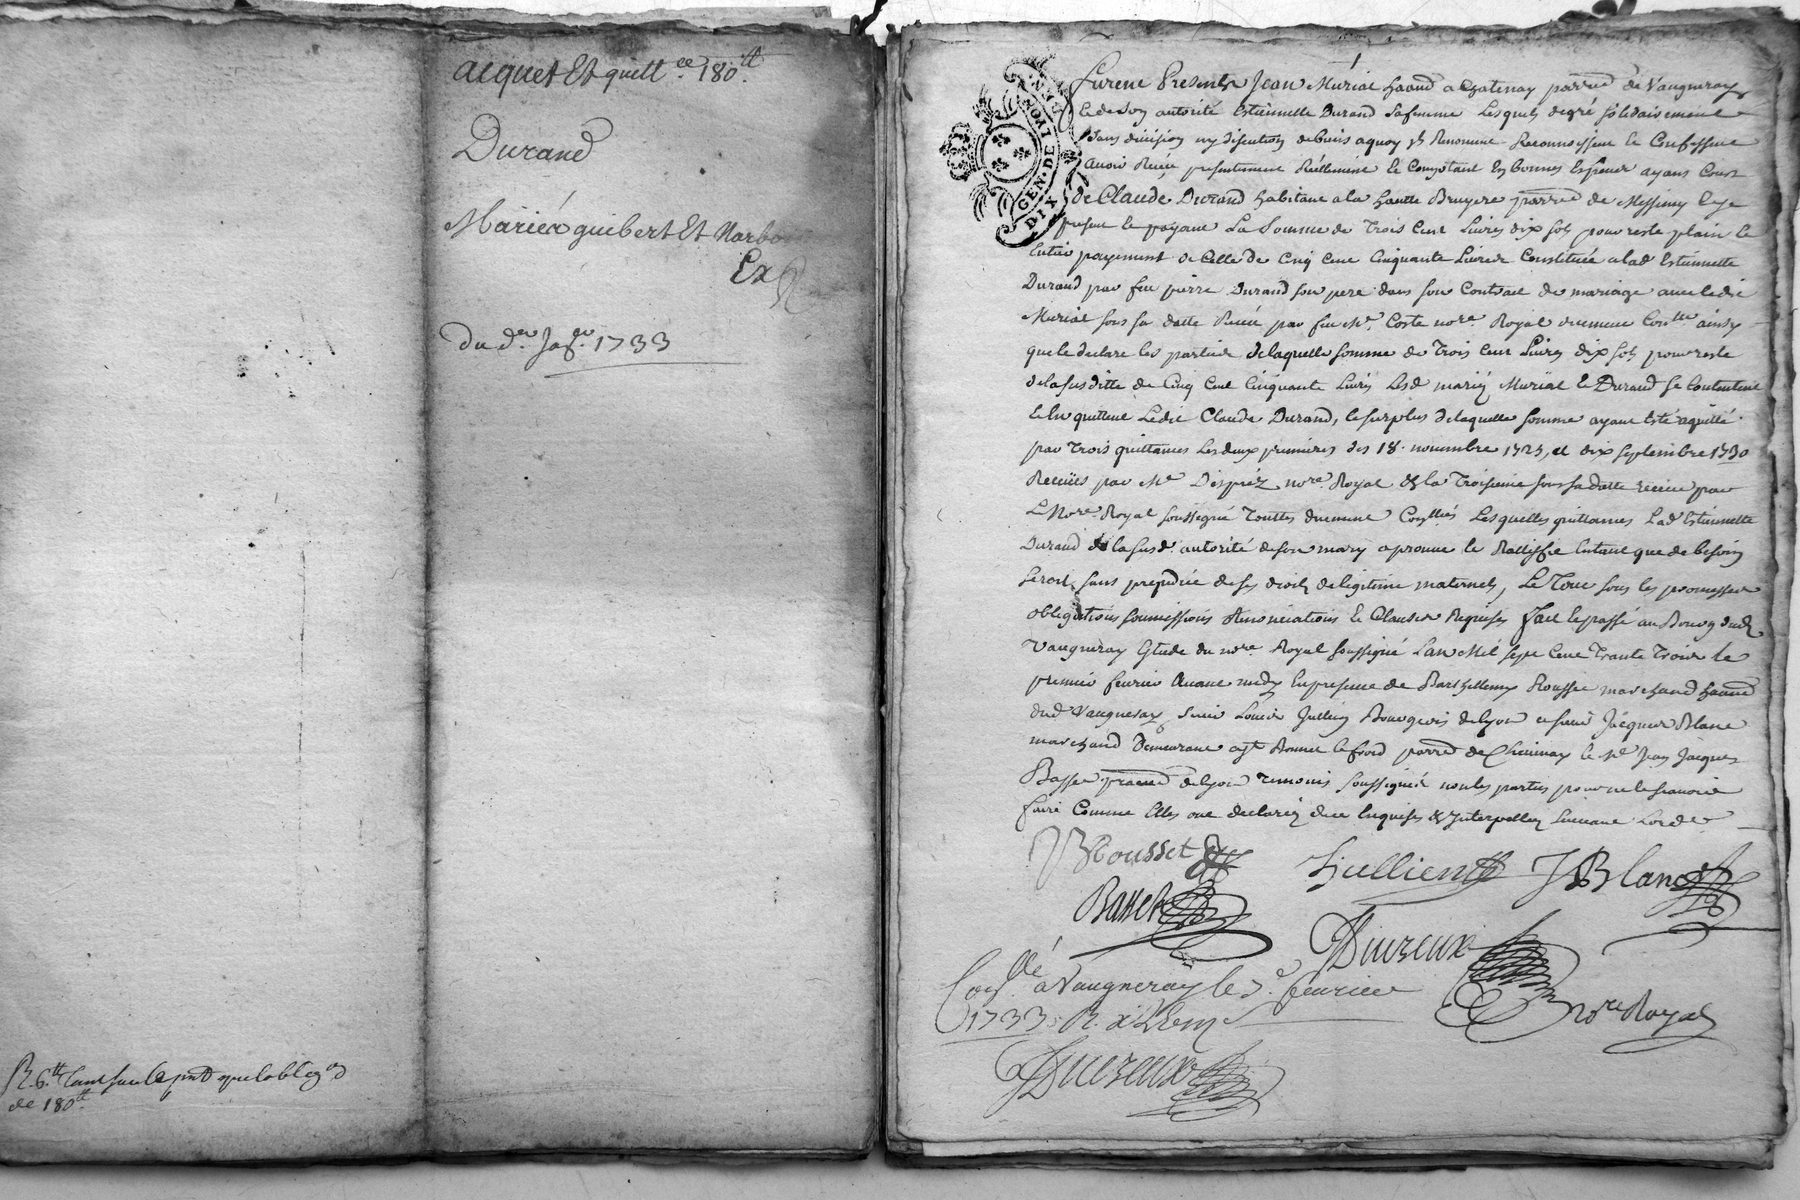 acquet Et quittce 180tt
Durand
Mariéz guibert Et Narbo
Ex
du der Jaer 1733
R. 6tt tant sur le pnt que lobligaon
de 180tt
GEN. DE LYON
DIX DEN.
furent Presents Jean Muriat habnd a Chatenay parre de Vaugneray
et de son autorité Estiennette Durand sa femme Lesquels de gré solidairement
sans division ny discution de biens a quoy ils Renoncent Reconnoissent et Confessent
avoir Receu presentement Réellement et Comptant En bonnes Especes ayans Cours
de Claude Durand habitant a la haute Bruyere parre de Messimy Icy
present et payant La Somme de Trois Cent Livres dix sols pour reste plain et
Entier payement de Celle de Cinq Cent Cinquante Livres Constituée a lad Estiennette
Durand par feu pierre Durand son pere dans son Contract de mariage avec ledit
Muriat sous sa datte Receu par feu Me Coste nore Royal duement Conllé ainsy
que le declare les parties de laquelle somme de Trois Cent Livres dix sols pour reste
de la susditte de Cinq Cent Cinquante Livres Lesd mariéz Muriat et Durand se Contentent
et En quittent Ledit Claude Durand, le surplus de laquelle somme ayant Esté aquitté
par Trois quittances Les deux premieres des 18 novembre 1725, et dix septembre 1730
Receües par Me Despréz nore Royal & la Troisieme sous sa datte receue par
Le Nore Royal soussigné Touttes duement Conllés Lesquelles quittances Lad Estiennette
Durand de la susd autorité de son mary aprouve et Rattiffie Entant que de besoin
seroit, sans prejudice de ses droits de legitime maternels, Le Tout sous les promesses
obligations soumissions Renonciations et Clauses Requises fait et passé au Bourg dud
Vaugneray Etude du nore Royal soussigné L'an Mil sept Cent Trante Trois le
premier fevrier avant midy En presence de Barthellemy Rousset marchand habnd
dud Vaugneray, sieur Louis Jullien Bourgeois de Lyon et sieur Jacques Blanc
marchand Demeurant a Jt Bonnet le froid parre de Chevinay et Me Jean Jacques
Basset praticien de Lyon Temoins soussignés non les parties pour ne le scavoir
faire Comme Elles ont declaréz de ce Enquises & Interpellez suivant Lordce
B Rousset
Jullien
J Blanc
Basset
Diureux
nore Royal
Conllé a Vaugneray le 7e fevrier
1733 R.
Diureux